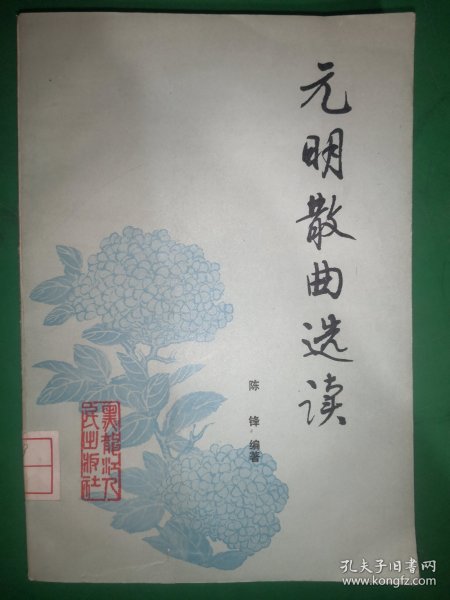 元明散曲选读
陈锋编著
黑龙江人
民出版社
孔夫子旧书网
www.kongfz.com